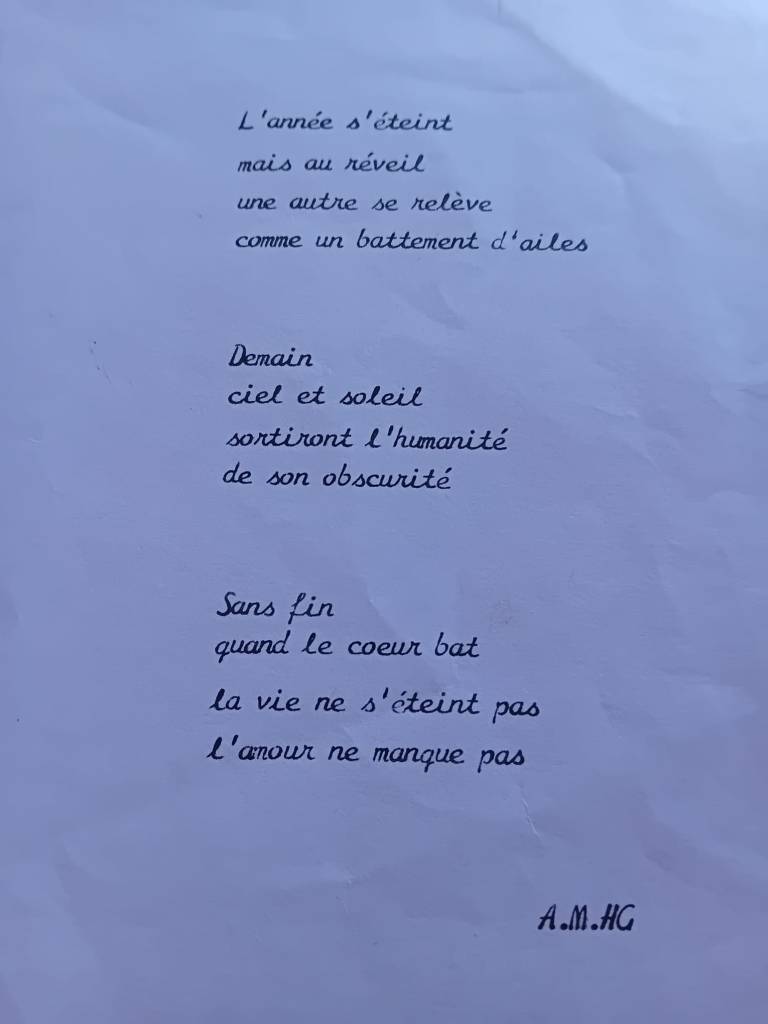 L'année s'éteint
mais au réveil
une autre se relève
comme un battement d'ailes
Demain
ciel et soleil
sortiront l'humanité
de son obscurité
Sans fin
quand le coeur bat
la vie ne s'éteint pas
l'amour ne manque pas
A.M.HG